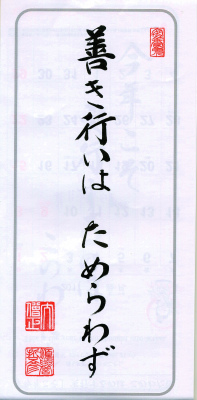 善き行いは ためらわず